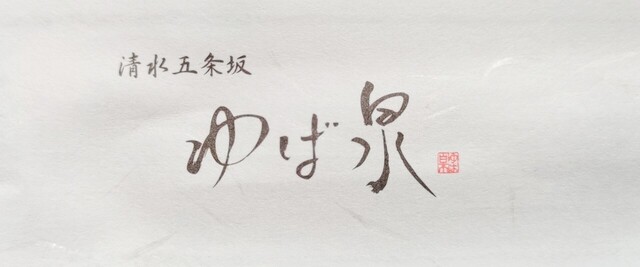 清水五条坂
ゆば泉